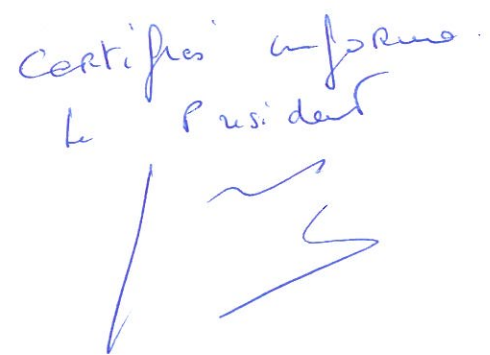 Certifiés conforme.
Le President